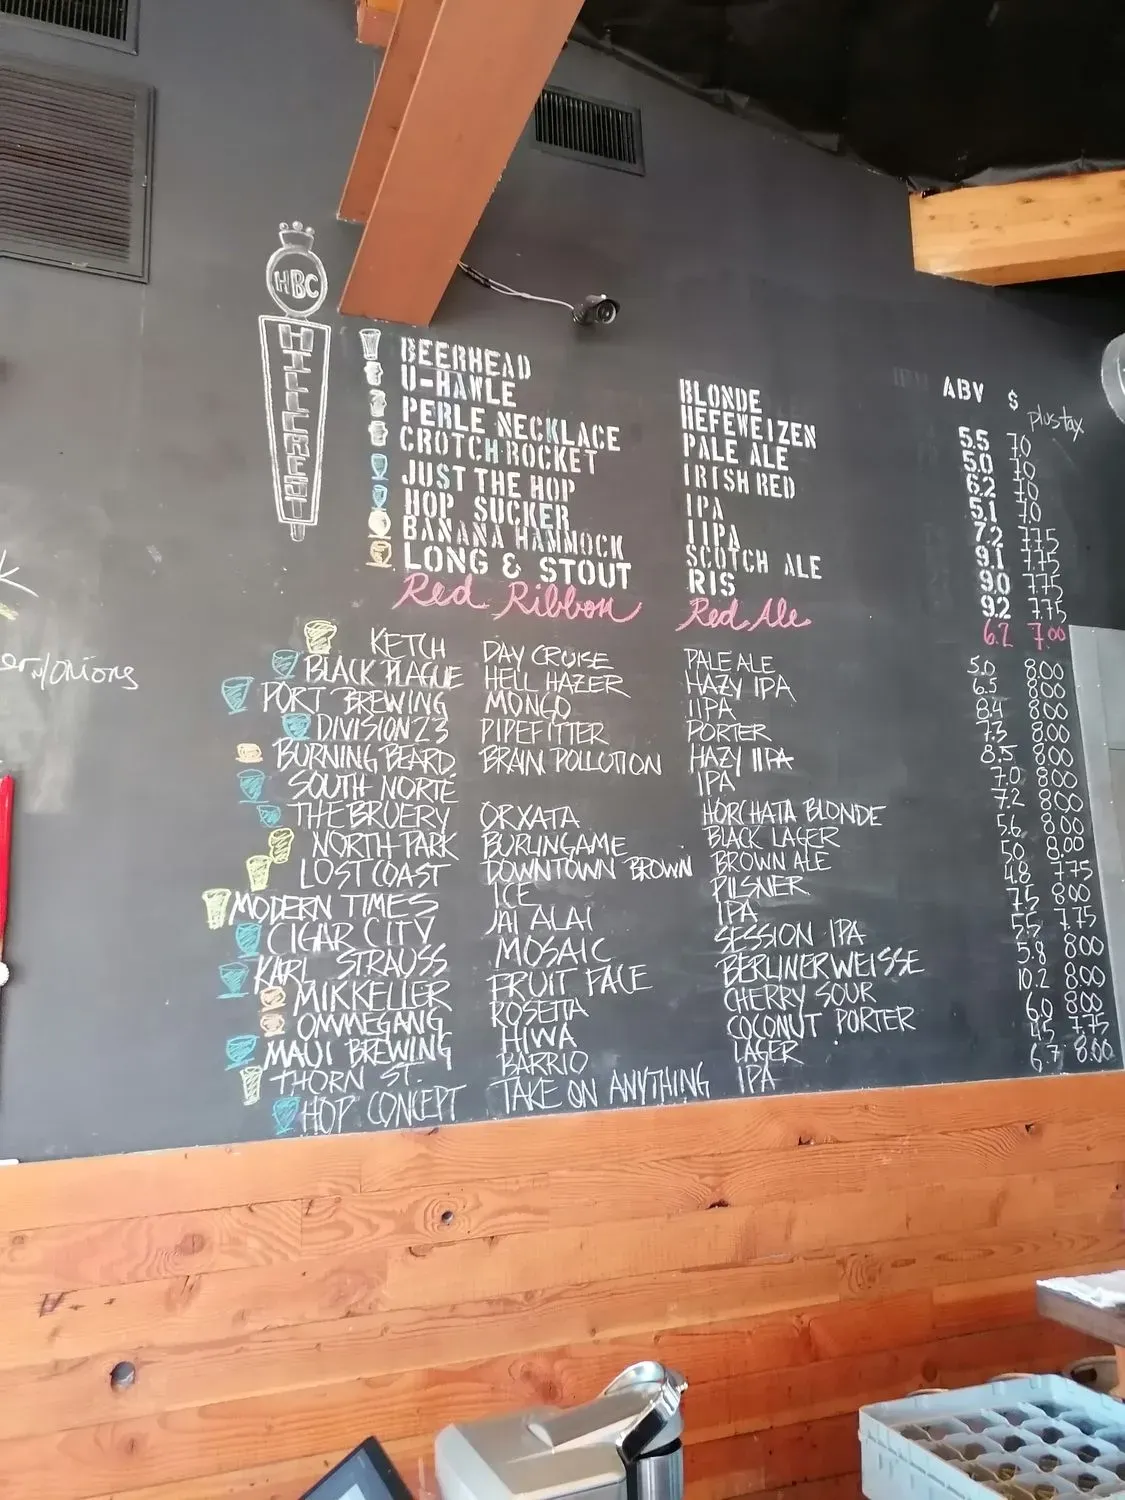 HBC
HILLCREST
ABV $
plus tax
BEERHEAD BLONDE 5.5 7.0
U-HAWLE HEFEWEIZEN 5.0 7.0
PERLE NECKLACE PALE ALE 6.2 7.0
CROTCH ROCKET IRISH RED 5.1 7.0
JUST THE HOP IPA 7.2 7.75
HOP SUCKER IIPA 9.1 7.75
BANANA HAMMOCK SCOTCH ALE 9.0 7.75
LONG & STOUT RIS 9.2 7.75
Red Ribbon Red Ale 6.2 7.00
KETCH DAY CRUISE PALE ALE 5.0 8.00
BLACK PLAGUE HELL HAZER HAZY IPA 6.5 8.00
PORT BREWING MONGO IIPA 8.4 8.00
DIVISION 23 PIPEFITTER PORTER 7.3 8.00
BURNING BEARD BRAIN POLLUTION HAZY IIPA 8.5 8.00
SOUTH NORTE IPA 7.0 8.00
THE BRUERY ORXATA HORCHATA BLONDE 7.2 8.00
NORTH PARK BURLINGAME BLACK LAGER 5.6 8.00
LOST COAST DOWNTOWN BROWN BROWN ALE 5.0 8.00
MODERN TIMES ICE PILSNER 4.8 7.75
CIGAR CITY JAI ALAI IPA 7.5 8.00
KARL STRAUSS MOSAIC SESSION IPA 5.5 7.75
MIKKELLER FRUIT FACE BERLINERWEISSE 5.8 8.00
OMMEGANG ROSETTA CHERRY SOUR 10.2 8.00
MAUI BREWING HIWA COCONUT PORTER 6.0 8.00
THORN ST. BARRIO LAGER 4.5 7.75
HOP CONCEPT TAKE ON ANYTHING IPA 6.7 8.00